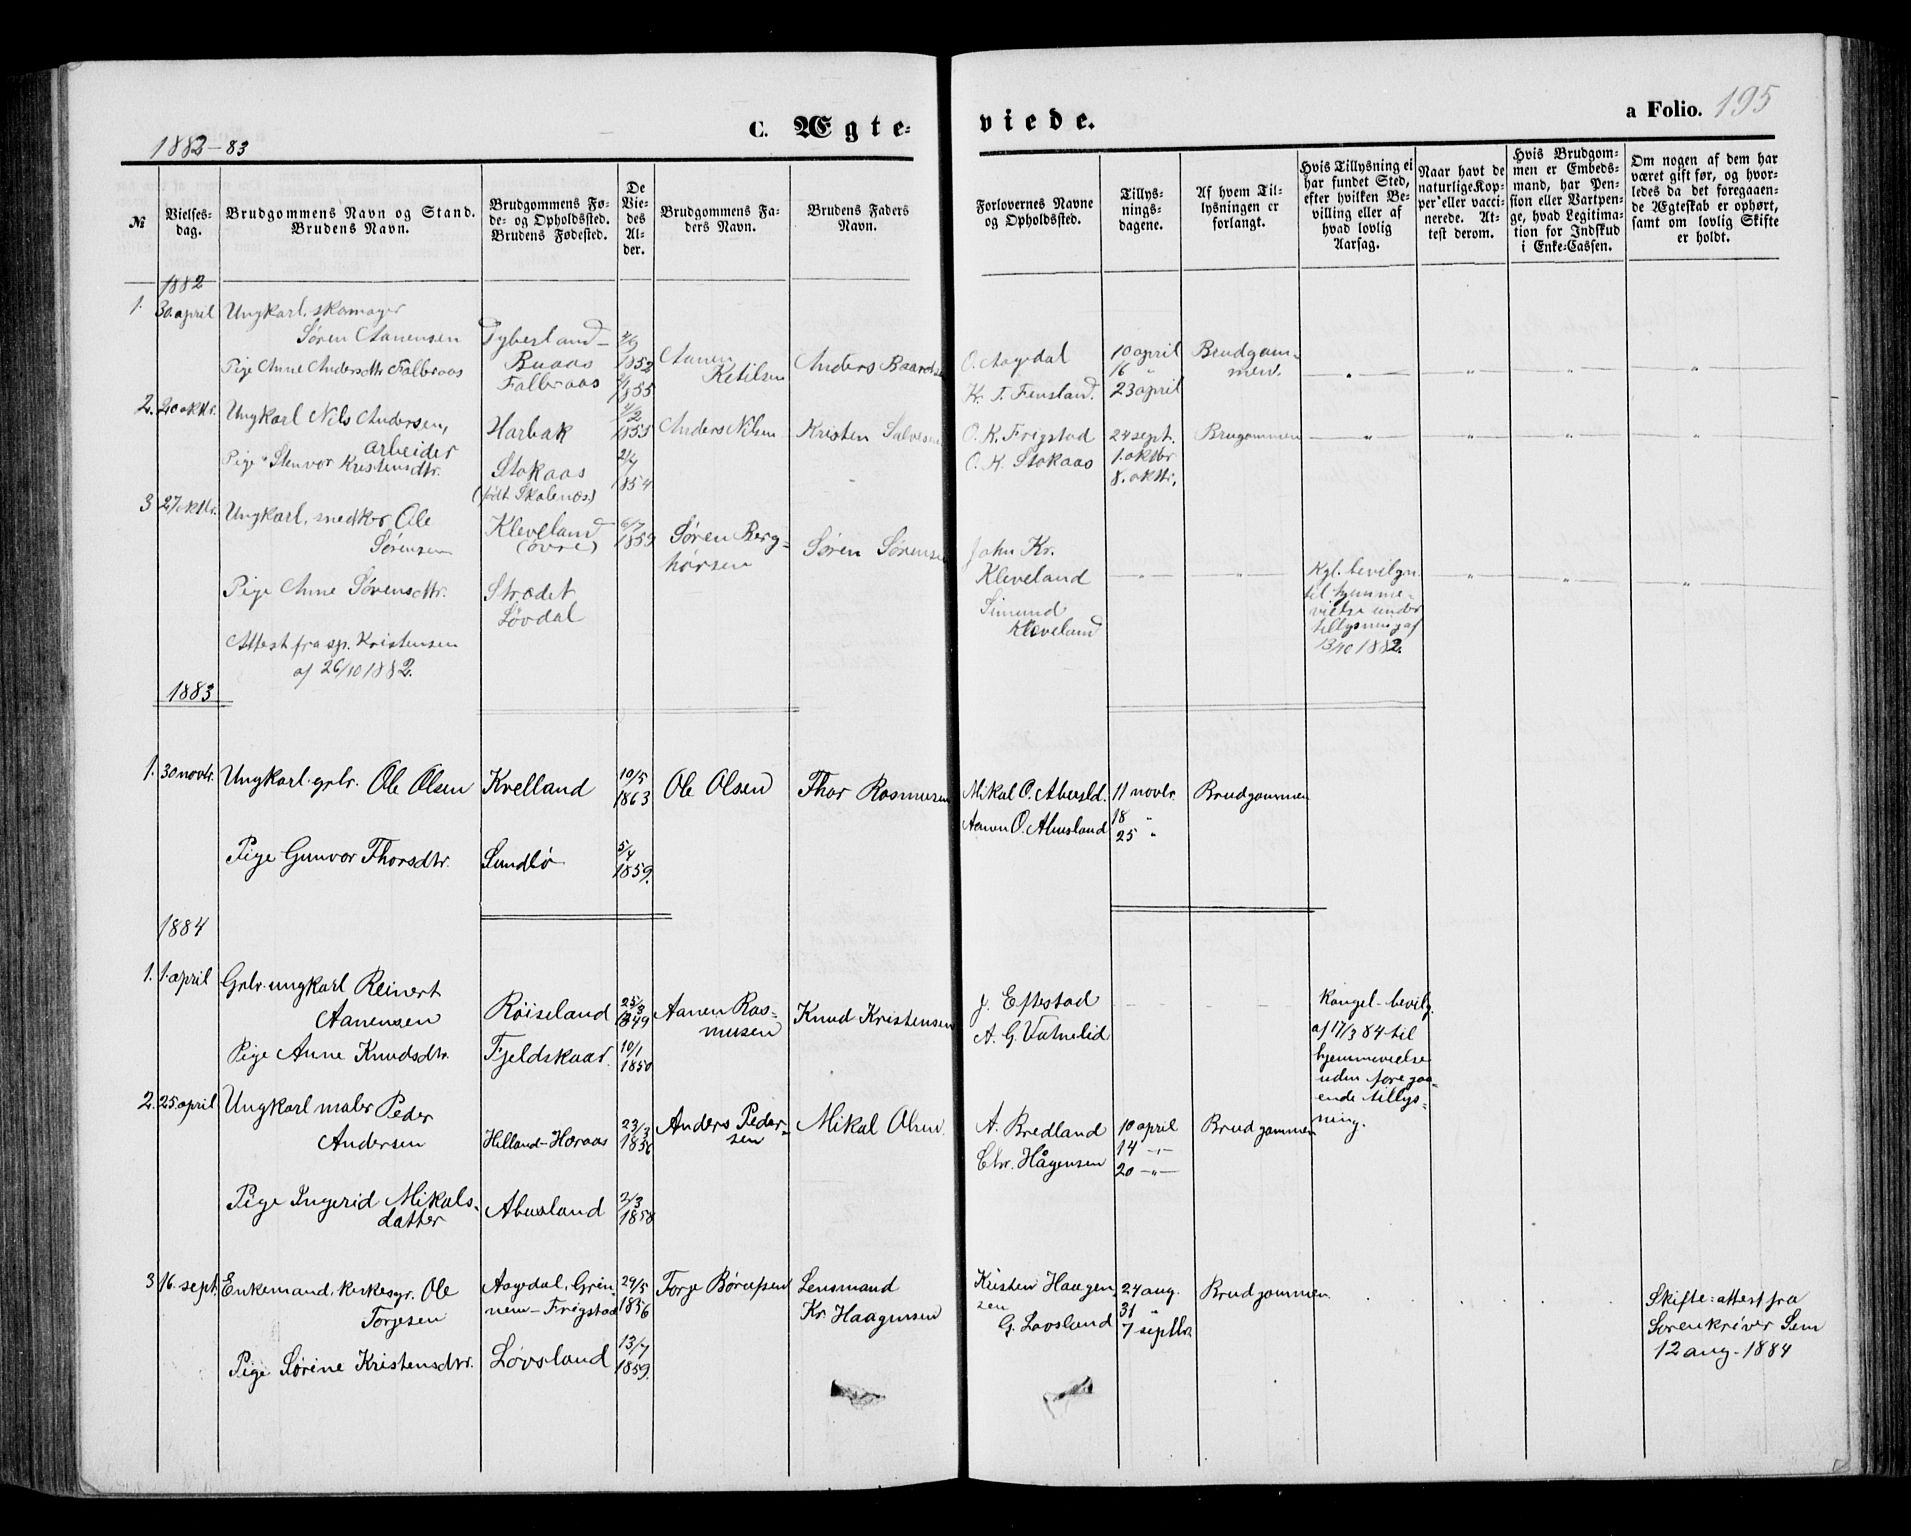 1882-83
C. Ægte-
viede.
a Folio. 195
№
Vielses-
dag.
Brudgommens Navn og Stand.
Brudens Navn.
Brudgommens Fø-
de- og Opholdssted.
Brudens Fødested.
De
Vie-
des
Al-
der.
Brudgommens Fa-
ders Navn.
Brudens Faders
Navn.
Forlovernes Navne
og Opholdssted.
Tillys-
nings-
dagene.
Af hvem Til-
lysningen er
forlangt.
Hvis Tillysning ei
har fundet Sted,
efter hvilken Be-
villing eller af
hvad lovlig
Aarsag.
Naar havt de
naturlige Kop-
per eller vacci-
nerede. At-
test derom.
Hvis Brudgom-
men er Embeds-
mand, har Pen-
sion eller Vartpen-
ge, hvad Legitima-
tion for Indskud
i Enke-Cassen.
Om nogen af dem har
været gift før, og hvor-
ledes da det foregaaen-
de Ægteskab er ophørt,
samt om lovlig Skifte
er holdt.
1882
1. 30 april Ungkarl, skomager
Søren Aanensen
Pige Anne Andersdtr Falbraas
Tyberland-
Buaas
Falbraas
1852
1855
Aanen
Ketilsen
Anders Baardsen
O. Aagedal
K. T. Finsland.
10 april
16 "
23 april
Brudgom-
men.
2. 20 oktbr. Ungkarl Nils Andersen,
arbeider
Pige Stenvor Kristensdtr.
Harbak
Stokaas
(født Skolenæs)
4/2
1855
2/7
1854
Anders Nilsen
Kristen Salvesen
O. K. Frigstad
O. K. Stokaas
24 sept.
1. oktbr
8. oktbr.
Brugommen
3 27 oktbr. Ungkarl, snedker Ole
Sørensen
Pige Anne Sørensdtr.
Attest fra sp. Kristensen
af 26/10 1882.
Kleveland
(øvre)
Strædet
Løvdal
6/7
1859
Søren Berg-
thorsen
Søren Sørensen
John Kr.
Kleveland
Simund
Kleveland
Kgl. bevilgn.
til hjemme-
vielse uden
tillysning af
13/10 1882.
1883
1. 30 novbr. Ungkarl gbr. Ole Olsen
Pige Gunvor Thorsdtr.
Kvelland
Sundbø
10/5
1863
5/4
1859.
Ole Olsen
Thor Rasmusen
Mikal O. Abusld.
Aanen O. Abusland
11 novbr.
18 "
25 "
Brudgommen
1884
1. 1. april Gbr. ungkarl Reinert
Aanensen
Pige Anne Knudsdtr.
Røiseland
Fjeldskaar.
25/3
1849
10/1
1850
Aanen Ras-
musen
Knud Kristensen
J. Eftestad
A. G. Vatnelid
Kongel. bevilg.
af 17/3 84 til
hjemmevielse
uden foregaa-
ende tillys-
ning.
2. 25. april Ungkarl maler Peder
Andersen
Pige Ingerid Mikals-
datter
Helland-Høraas
Abusland
23/3
1856
2/3
1858
Anders Peder-
sen
Mikal Olsen
A. Bredland
Chr. Hågensen
10 april
14 -"-
20 -"-
Brudgommen
3 16. sept. Enkemand, kirkesgr. Ole
Torjesen
Pige Sørine Kristensdtr.
Aagedal, Gren-
nem-Frigstad
Løvsland
29/5
1856
13/7
1859.
Torje Børufsen
Lensmand
Kr. Haagensen
Kristen Haagen
sen
G. Lovsland
24 aug.
31 "
7 septbr.
Brudgommen
Skifte-attest fra
Sorenskriver Sem
12 aug. 1884